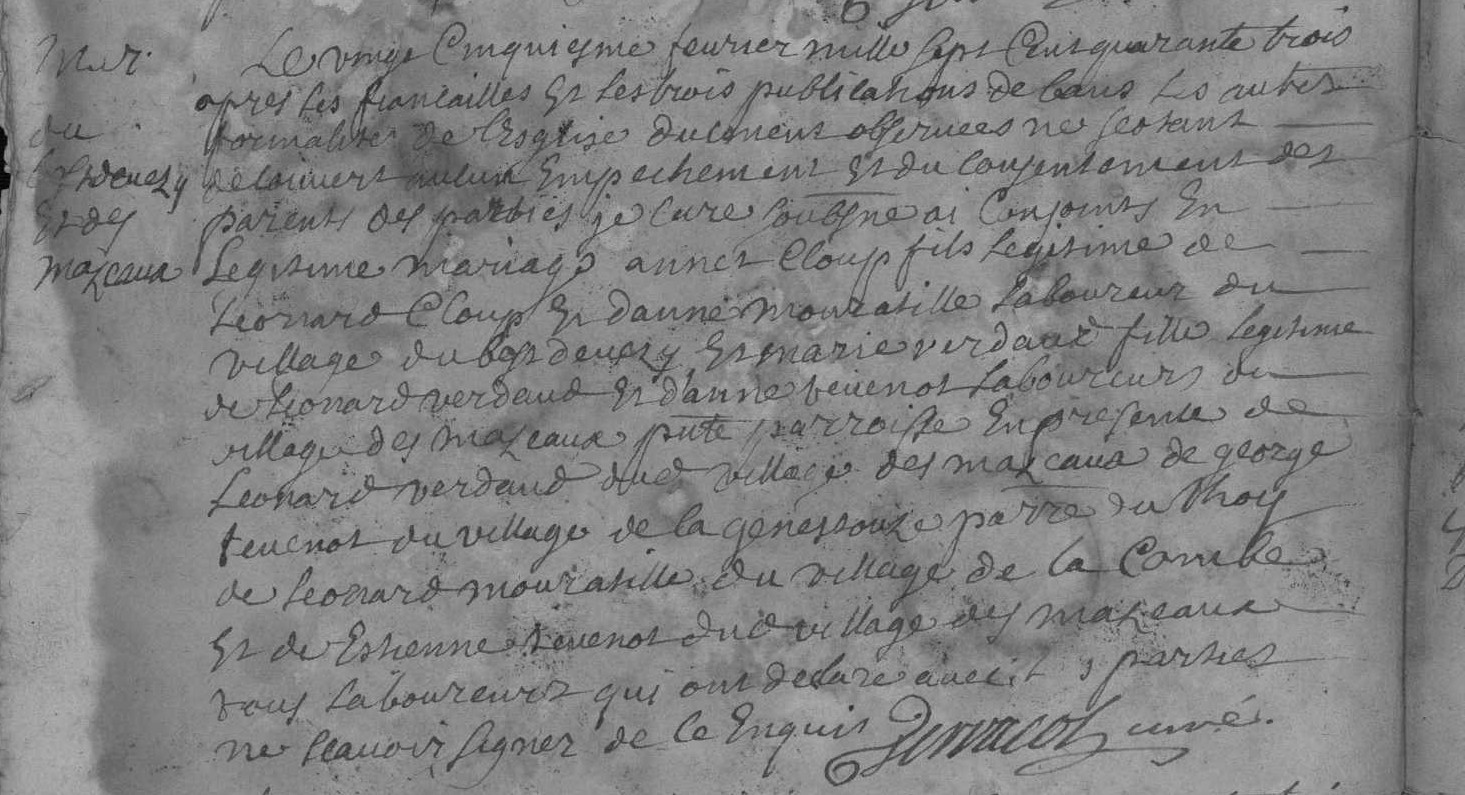 Mar.
du
et des
mazeaux
Le vingt Cinquiesme feurier mille Sept Cent quarante trois
apres Les fiancailles Et Les trois publications de bans Les autres
formalités de l'Esglise duement observees ne sestant
decouvert aucun Empechement Et du Consentement des
parents des parties je Cure Soubsne ai Conjoints En
Legitime mariage annet Cloup fils Legitime de
Leonard Cloup Et danne mouratille Laboureur du
village du Et marie verdaud fille Legitime
de Leonard verdaud Et d'anne tevenot Laboureurs du
village des mazeaux pnte parroisse En presence de
Leonard verdaud dud village des mazeaux de george
tevenot du village de la genessouze parre du
de Leonard mouratille du village de la Combe
Et de Estienne tevenot dud village des mazeaux
tous Laboureurs qui ont declare avec parties
ne scavoir signer de ce Enquis curé.